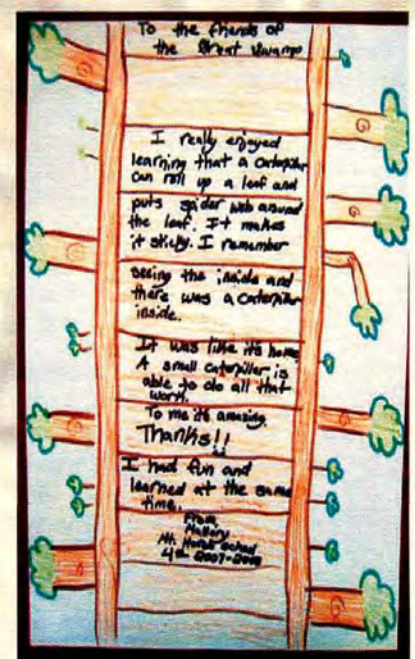 To the friends of
the Great Swamp
I really enjoyed
learning that a caterpillar
can roll up a leaf and
puts spider web around
the leaf. It makes
it sticky. I remember
seeing the inside and
there was a caterpillar
inside.
It was like it's home.
A small caterpillar is
able to do all that
work.
To me it's amazing.
Thanks!!
I had fun and
learned at the same
time.
From,
Mallory
Mt. Horeb School
4th 2007-2008